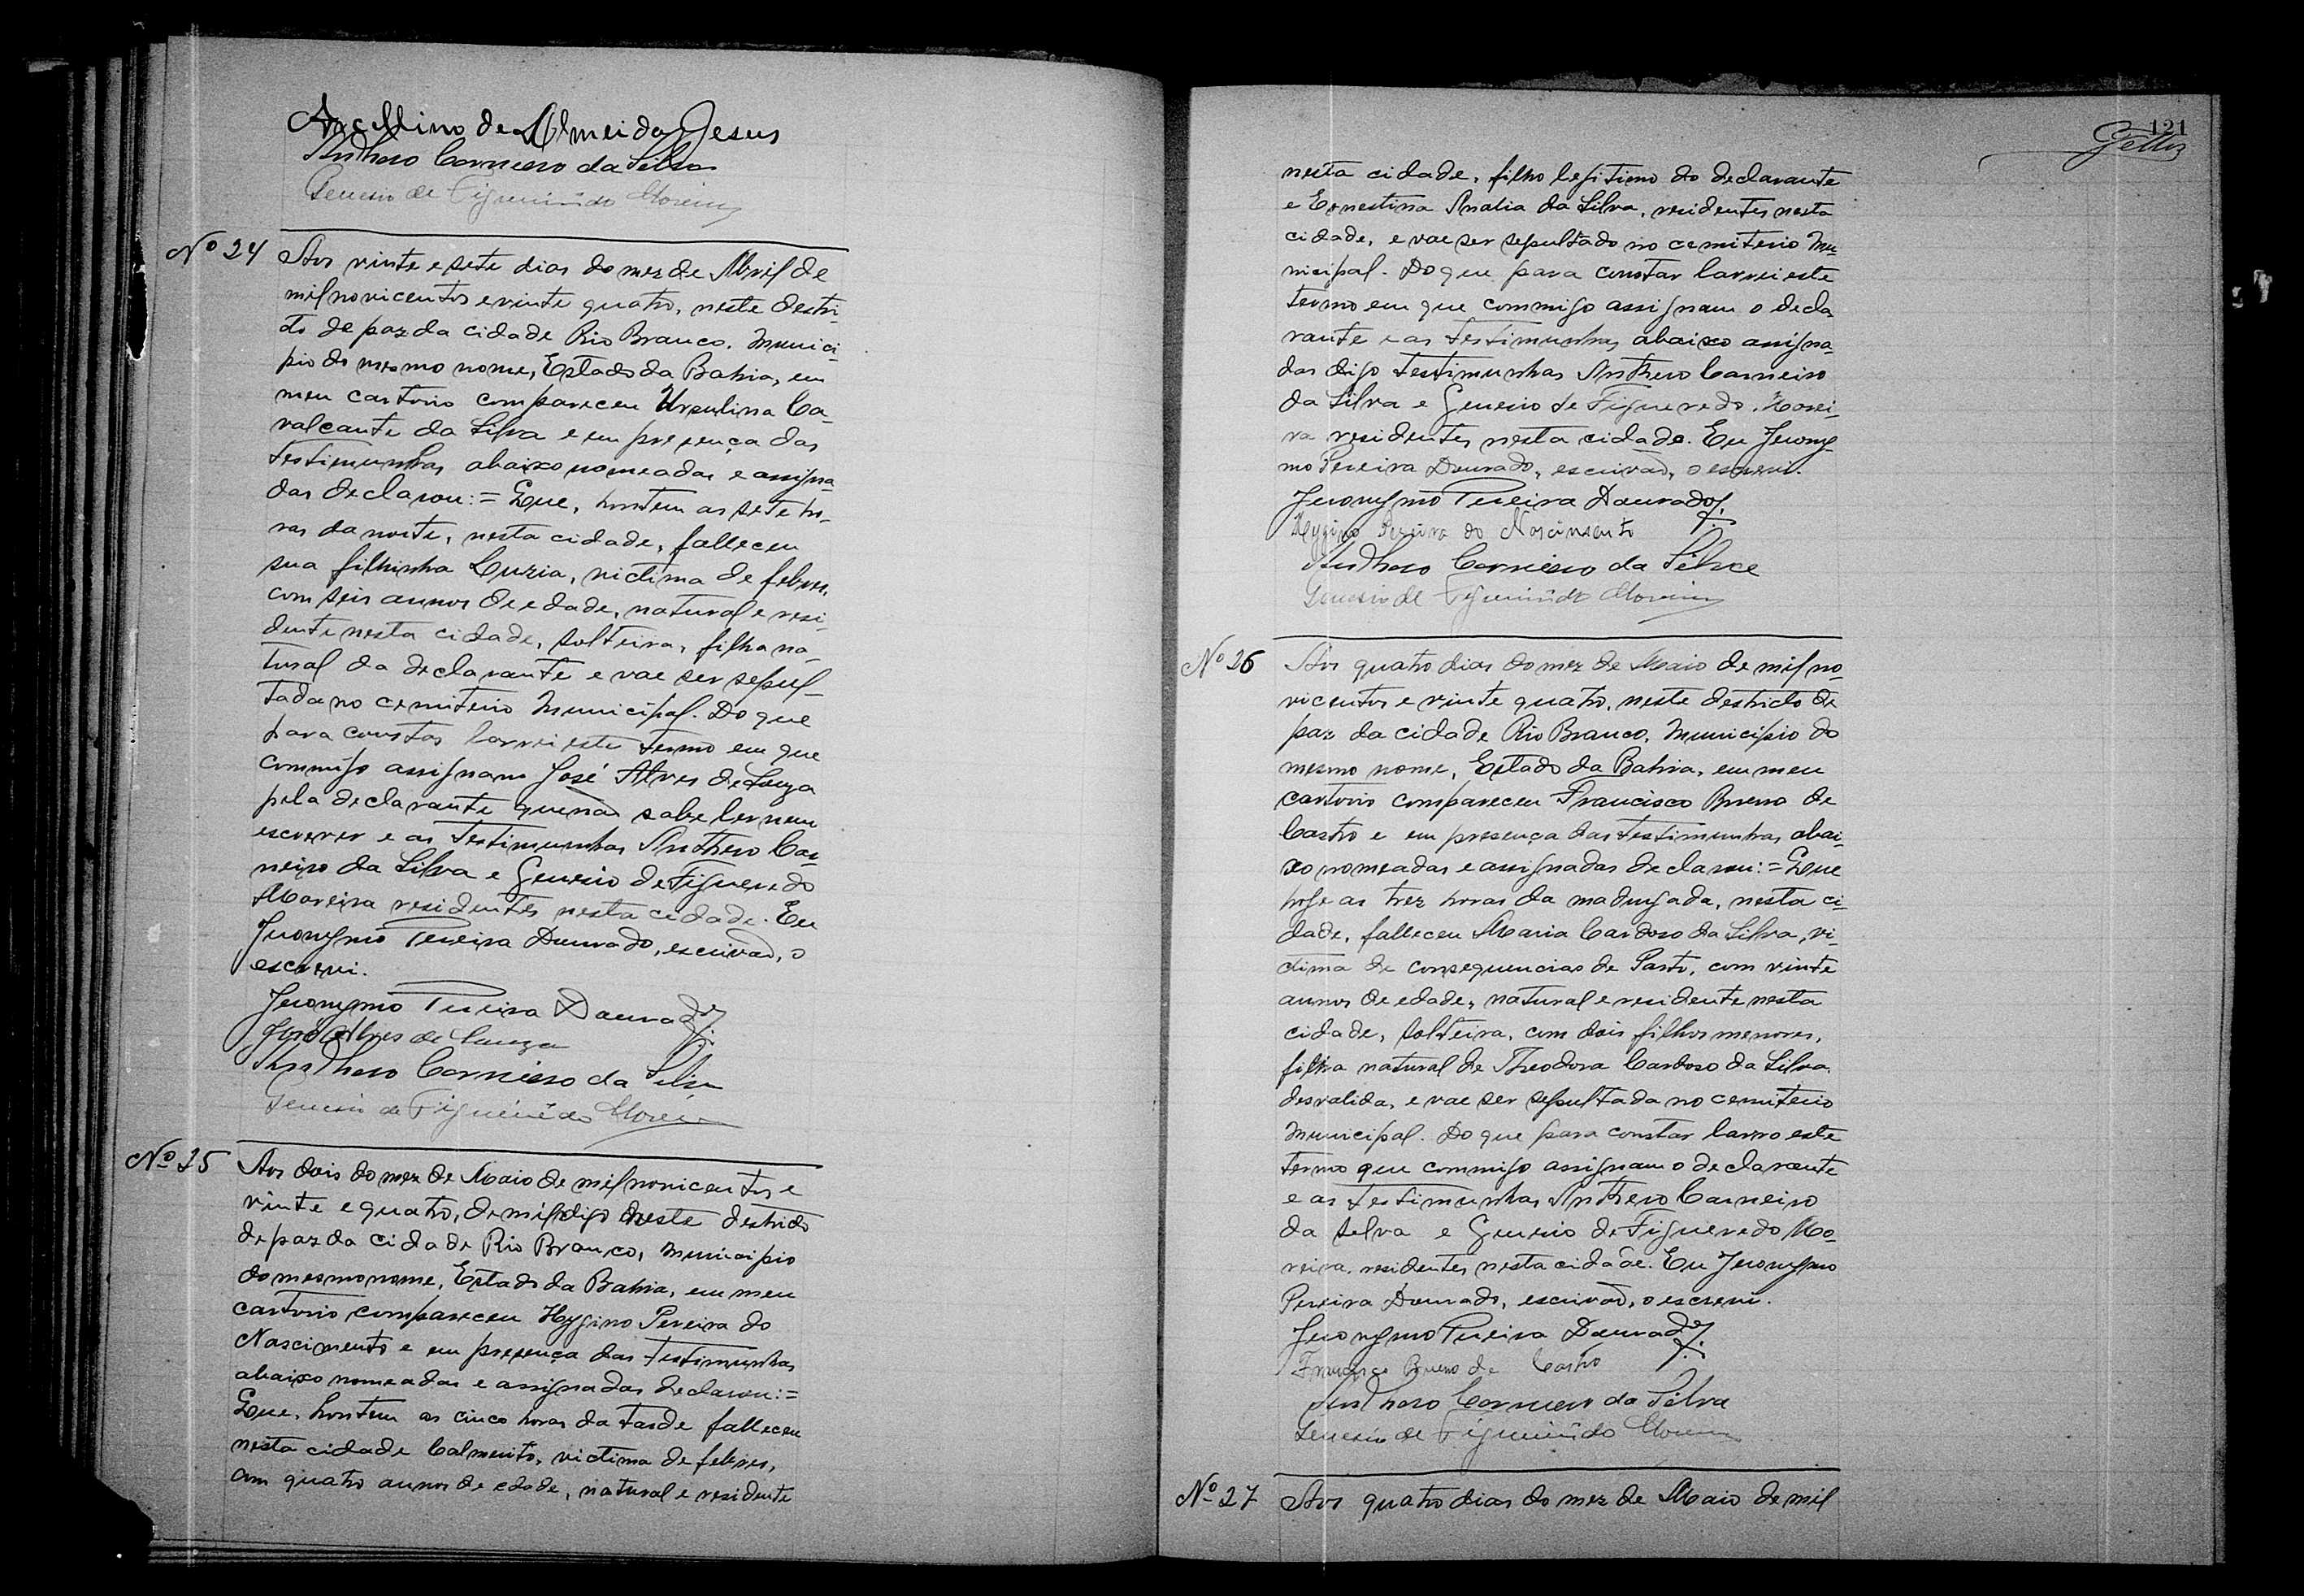 Avellino de Almeida Jesus
Anthero Carneiro da Silva
Genesio de Figueirêdo Moreira
Nº 24 Aos vinte e sete dias do mez de Abril de
mil novicentos e vinte quatro, neste destri-
to de paz da cidade Rio Branco, Munici-
pio do mesmo nome, Estado da Bahia, em
meu cartorio compareceu Ursulina Ca-
valcante da Silva e em presença das
testimunhas abaixo nomeadas e assigna-
das declarou:= Que, hontem as sete ho-
ras da noite, nesta cidade, falleceu
sua filhinha Luzia, victima de febres,
com seis annos de edade, natural e resi-
dente nesta cidade, solteira, filha na-
tural da declarante e vae ser sepul-
tada no cemiterio Municipal. Do que
para constar lavrei este termo em que
commigo assignam José Alves de Souza
pela declarante que não sabe ler nem
escrever e as testimunhas Anthero Car-
neiro da Silva e Genesio de Figueredo
Moreira residentes nesta cidade. Eu
Jeronymo Pereira Dourado, escrivão, o
escrevi.
Jeronymo Pereira Dourado
José Alves de Souza
Anthero Carneiro da Silva
Genesio de Figueirêdo Moreira
Nº 25 Aos dois do mez de Maio de mil novicentos e
vinte e quatro, de mil digo neste destricto
de paz da cidade Rio Branco, Municipio
do mesmo nome, Estado da Bahia, em meu
cartorio compareceu Hygino Pereira do
Nascimento e em presença das testimunhas
abaixo nomeadas e assignadas declarou:=
Que, hontem as cinco horas da tarde falleceu
nesta cidade Calmerito, victima de febres,
com quatro annos de edade, natural e residente
121
nesta cidade, filho legitimo do declarante
e Ernestina Analia da Silva, residentes nesta
cidade, e vae ser sepultado no cemiterio Mu-
nicipal. Do que para constar lavrei este
termo em que commigo assignam o decla-
rante e as testimunhas abaixo assigna-
das digo testimunhas Anthero Carneiro
da Silva e Genesio de Figueredo Morei-
ra residentes nesta cidade. Eu Jerony-
mo Pereira Dourado, escrivão, o escrevi.
Jeronymo Pereira Dourado
Hygino Pereira do Nascimento
Anthero Carneiro da Silva
Genesio de Figueirêdo Moreira
Nº 26 Aos quatro dias do mez de Maio de mil no-
vicentos e vinte quatro, neste destricto de
paz da cidade Rio Branco, Municipio do
mesmo nome, Estado da Bahia, em meu
cartorio compareceu Francisco Bueno de
Castro e em presença das testimunhas abai-
xo nomeadas e assignadas declarou:= Que
hoje as trez horas da madrugada, nesta ci-
dade, falleceu Maria Cardoso da Silva, vi-
ctima de consequencias de Parto, com vinte
annos de edade, natural e residente nesta
cidade, solteira, com dois filhos menores,
filha natural de Theodora Cardoso da Silva,
desvalida, e vae ser sepultada no cemiterio
Municipal. Do que para constar lavro este
termo que commigo assignam o declarante
e as testimunhas Anthero Carneiro
da Selva e Genesio de Figueredo Mo-
reira, residentes nesta cidade. Eu Jeronymo
Pereira Dourado, escrivão, o escrevi.
Jeronymo Pereira Dourado
Francisco Bueno de Castro
Anthero Carneiro da Silva
Genesio de Figueirêdo Moreira
Nº 27 Aos quatro dias do mez de Maio de mil